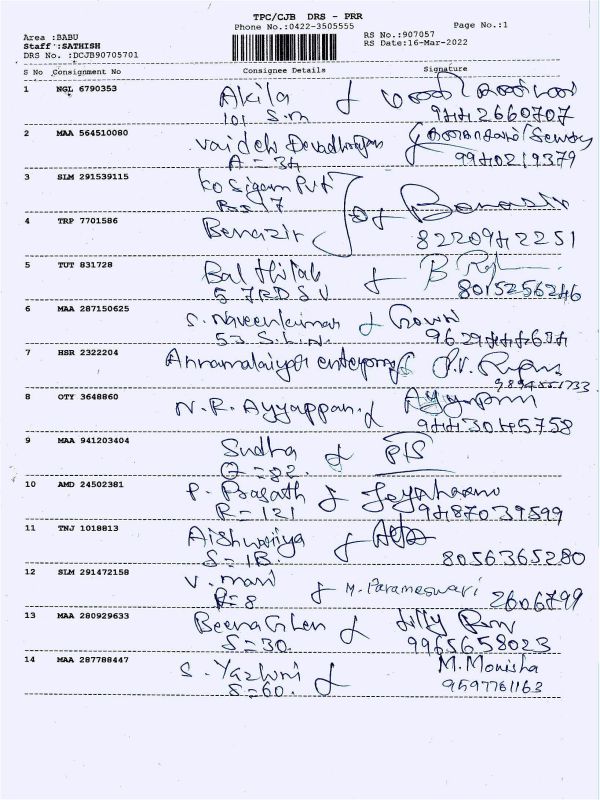 TPC/CJB DRS - PRR
Phone No.:0422-3505555
Page No.:1
Area :BABU
Staff :SATHISH
DRS No. :DCJB90705701
RS No.:907057
RS Date:16-Mar-2022
S No Consignment No Consignee Details Signature
1 NGL 6790353 Akila
101 S.M 9442660707
2 MAA 564510080 Vaideh Devadharajan
A = 34 9940219379
3 SLM 291539115 Ko Sigam Pvt
4 TRP 7701586 Benazir Benazir
8220942251
5 TUT 831728 Bal thilak
8015256246
6 MAA 287150625 S. Naveenkumar
53 S.L.N.
7 HSR 2322204 Annamalaiyar enterprises
9894551733
8 OTY 3648860 N. R. Ayyappan. Ayyappan
9443045758
9 MAA 941203404 Sudha
= 82.
10 AMD 24502381 P. Prasath
R = 121 9487039599
11 TNJ 1018813 Aishwariya
S = 1B. 8056365280
12 SLM 291472158 V. mari M. Parameswari
= 8 2606799
13 MAA 280929633 Beena
S = 30. 9965658023
14 MAA 287788447 S. Yazhini M. Monisha
S = 60. 9597761163